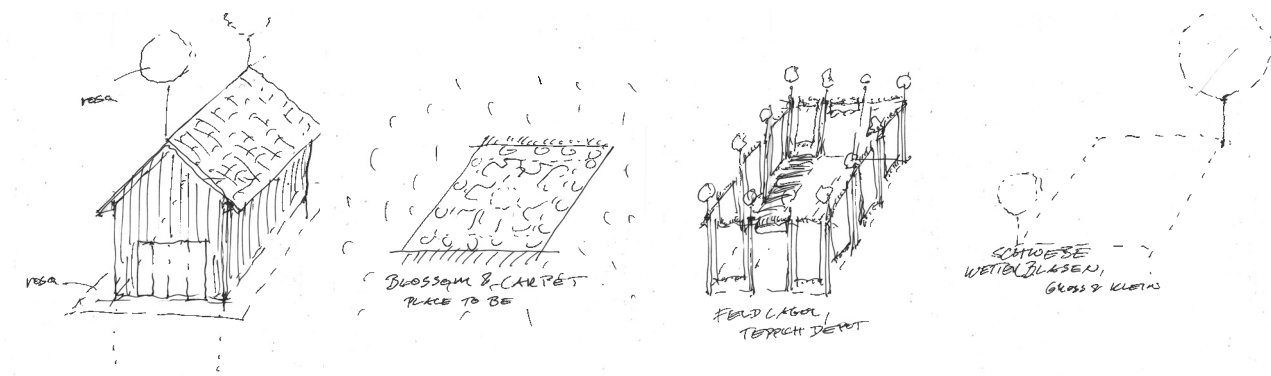 rosa
rosa
BLOSSOM & CARPET
PLACE TO BE
FELDLAGER,
TEPPICH DEPOT
SCHWEBE
GROSS & KLEIN